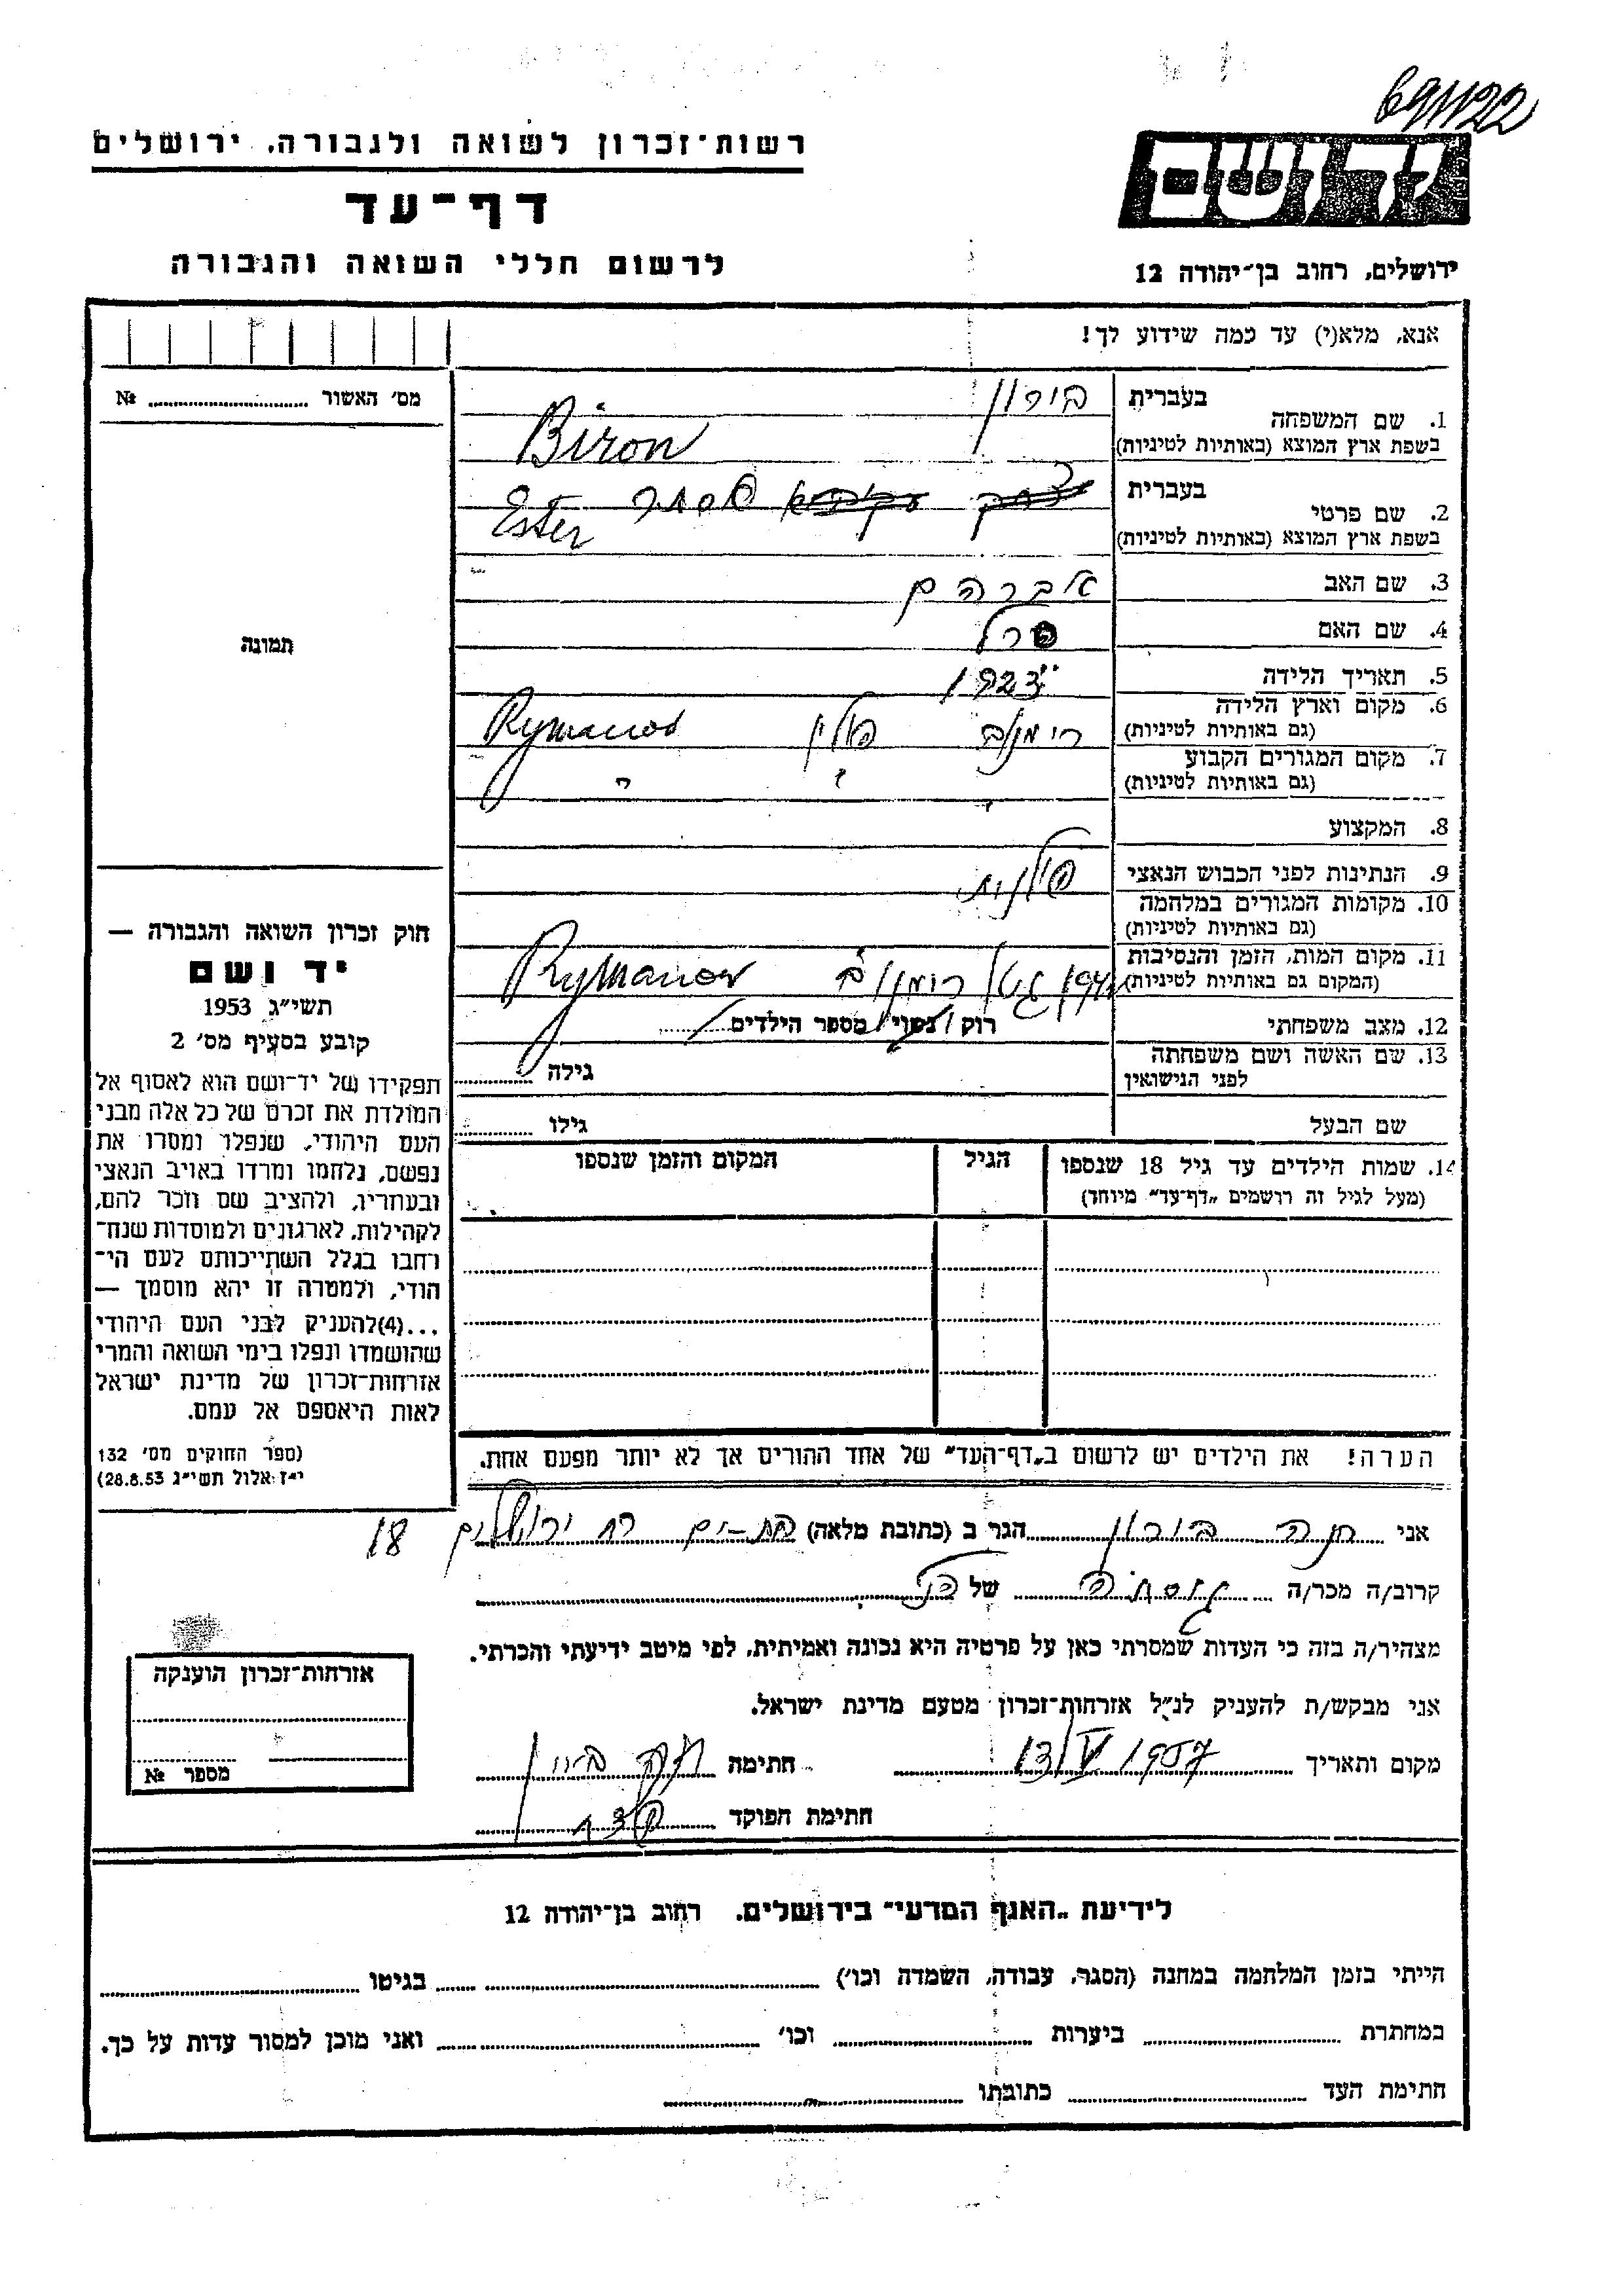 691122
רשות-זכרון לשואה ולגבורה, ירושלים
יד ושם
דף-עד
לרשום חללי השואה והגבורה
ירושלים, רחוב בן-יהודה 12
אנא, מלא(י) עד כמה שידוע לך!
מס' האשור № 
1. שם המשפחה
בעברית בירון
בשפת ארץ המוצא (באותיות לטיניות) Biron
2. שם פרטי
בעברית אסתר
בשפת ארץ המוצא (באותיות לטיניות) Ester
3. שם האב אברהם
4. שם האם פרל
5. תאריך הלידה
6. מקום וארץ הלידה
(גם באותיות לטיניות) רימנוב פולין Rymanow
7. מקום המגורים הקבוע
(גם באותיות לטיניות) " " "
8. המקצוע
9. הנתינות לפני הכבוש הנאצי פולנית
10. מקומות המגורים במלחמה
(גם באותיות לטיניות)
11. מקום המות, הזמן והנסיבות
(המקום גם באותיות לטיניות) רימנוב Rymanow
12. מצב משפחתי רוק / נשוי / מספר הילדים
13. שם האשה ושם משפחתה
לפני הנישואין גילה
שם הבעל גילו
תמונה
חוק זכרון השואה והגבורה —
יד ושם
תשי"ג 1953
קובע בסעיף מס' 2
תפקידו של יד-ושם הוא לאסוף אל
המולדת את זכרם של כל אלה מבני
העם היהודי, שנפלו ומסרו את
נפשם, נלחמו ומרדו באויב הנאצי
ובעוזריו, ולהציב שם וזכר להם,
לקהילות, לארגונים ולמוסדות שנח-
רבו בגלל השתייכותם לעם הי-
הודי, ולמטרה זו יהא מוסמך —
...(4)להעניק לבני העם היהודי
שהושמדו ונפלו בימי השואה והמרי
אזרחות-זכרון של מדינת ישראל
לאות היאספם אל עמם.
(ספר החוקים מס' 132
י"ז אלול תשי"ג 28.8.53)
14. שמות הילדים עד גיל 18 שנספו הגיל המקום והזמן שנספו
(מעל לגיל זה רושמים „דף-עד" מיוחד)
הערה! את הילדים יש לרשום ב„דף-העד" של אחד ההורים אך לא יותר מפעם אחת.
אני חנה בירון הגר ב (כתובת מלאה) בת-ים רח ירושלים 18
קרוב/ה מכר/ה של
מצהיר/ה בזה כי העדות שמסרתי כאן על פרטיה היא נכונה ואמיתית, לפי מיטב ידיעתי והכרתי.
אני מבקש/ת להעניק לנ"ל אזרחות-זכרון מטעם מדינת ישראל.
מקום ותאריך 13/V 1957 חתימה חנה בירון
חתימת הפוקד
אזרחות-זכרון הוענקה
מספר №
לידיעת „האגף המדעי" בירושלים, רחוב בן-יהודה 12
הייתי בזמן המלחמה במחנה (הסגר, עבודה, השמדה וכו') בגיטו
במחתרת ביערות וכו' ואני מוכן למסור עדות על כך.
חתימת העד כתובתו